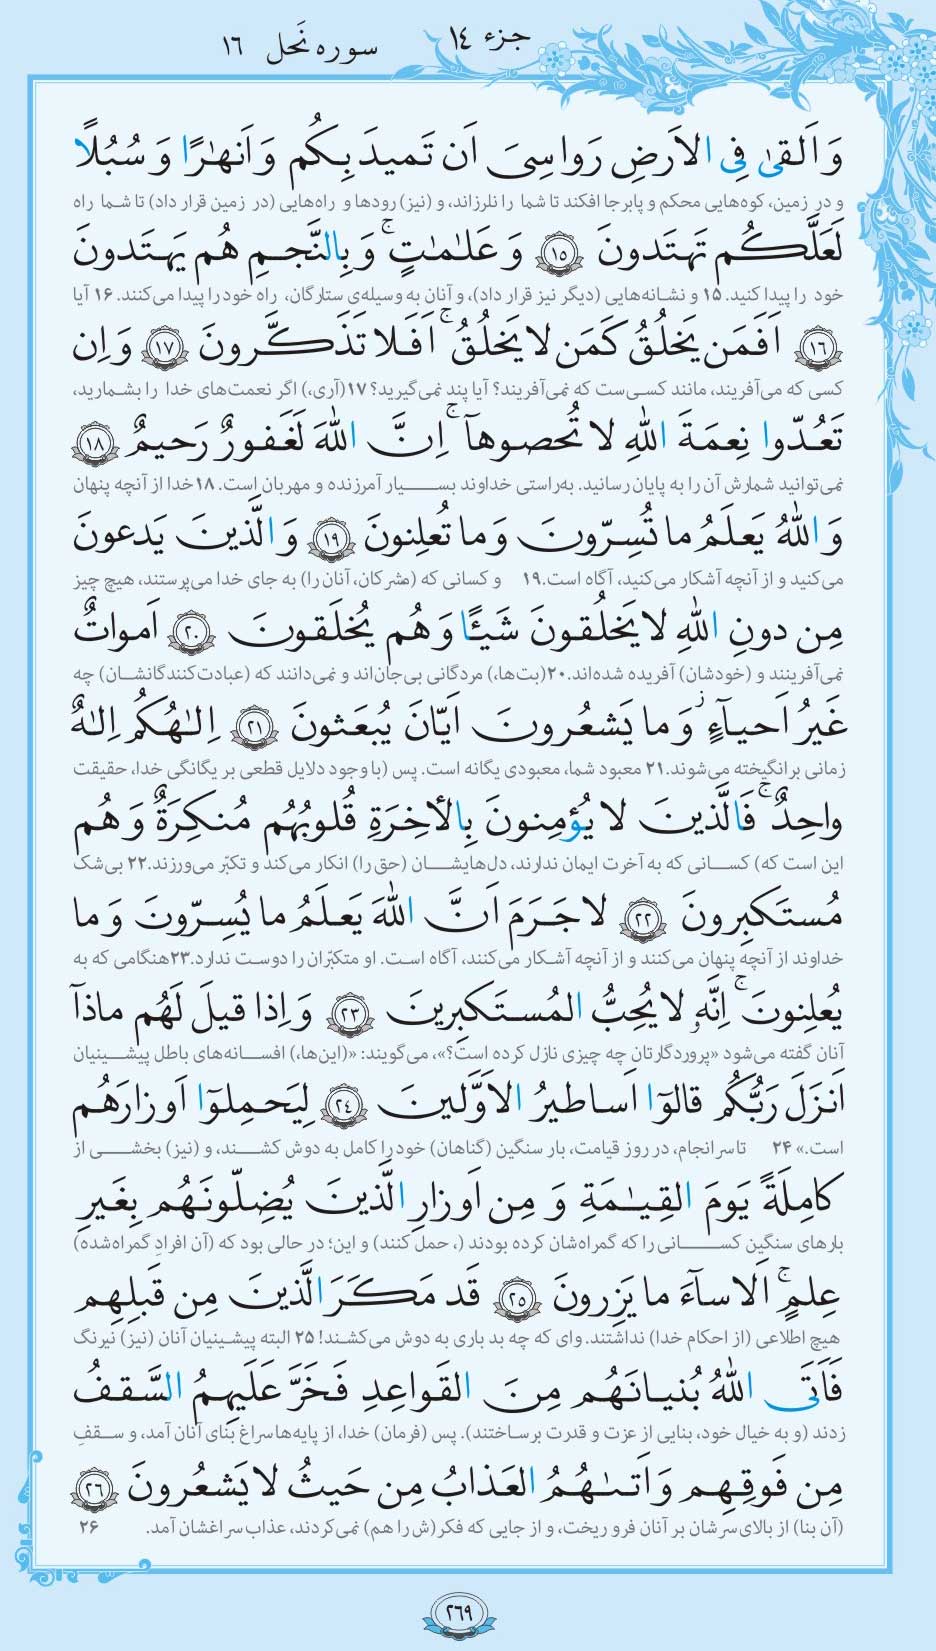 جزء ١٤
سوره نَحل ١٦
وَ اَلقیٰ فِی الاَرضِ رَواسِیَ اَن تَمیدَ بِکُم وَ اَنهٰرًا وَ سُبُلًا
و در زمین، کوه‌هایی محکم و پابرجا افکند تا شما را نلرزاند، و (نیز) رودها و راه‌هایی (در زمین قرار داد) تا شما راه
لَعَلَّکُم تَهتَدونَ ١٥ وَ عَلٰمٰتٍ ۚ وَ بِالنَّجمِ هُم یَهتَدونَ
خود را پیدا کنید. ۱۵ و نشانه‌هایی (دیگر نیز قرار داد)، و آنان به وسیله‌ی ستارگان، راه خود را پیدا می‌کنند. ۱۶ آیا
١٦ اَفَمَن یَخلُقُ کَمَن لا یَخلُقُ ۚ اَفَلا تَذَکَّرونَ ١٧ وَ اِن
کسی که می‌آفریند، مانند کسی‌ست که نمی‌آفریند؟ آیا پند نمی‌گیرید؟ ۱۷ (آری،) اگر نعمت‌های خدا را بشمارید،
تَعُدّوا نِعمَةَ اللهِ لا تُحصوهآ ۚ اِنَّ اللهَ لَغَفورٌ رَحیمٌ ١٨
نمی‌توانید شمارش آن را به پایان رسانید. به‌راستی خداوند بسیار آمرزنده و مهربان است. ۱۸ خدا از آنچه پنهان
وَ اللهُ یَعلَمُ ما تُسِرّونَ وَ ما تُعلِنونَ ١٩ وَ الَّذینَ یَدعونَ
می‌کنید و از آنچه آشکار می‌کنید، آگاه است. ۱۹ و کسانی که (مشرکان، آنان را) به جای خدا می‌پرستند، هیچ چیز
مِن دونِ اللهِ لا یَخلُقونَ شَیـًٔا وَ هُم یُخلَقونَ ٢٠ اَمواتٌ
نمی‌آفرینند و (خودشان) آفریده شده‌اند. ۲۰ (بت‌ها،) مردگانی بی‌جان‌اند و نمی‌دانند که (عبادت‌کنندگانشان) چه
غَیرُ اَحیآءٍ ۖ وَ ما یَشعُرونَ اَیّانَ یُبعَثونَ ٢١ اِلٰهُکُم اِلٰهٌ
زمانی برانگیخته می‌شوند. ۲۱ معبود شما، معبودی یگانه است. پس (با وجود دلایل قطعی بر یگانگی خدا، حقیقت
واحِدٌ ۚ فَالَّذینَ لا یُؤمِنونَ بِالأخِرَةِ قُلوبُهُم مُنکِرَةٌ وَ هُم
این است که) کسانی که به آخرت ایمان ندارند، دل‌هایشان (حق را) انکار می‌کند و تکبّر می‌ورزند. ۲۲ بی‌شک
مُستَکبِرونَ ٢٢ لا جَرَمَ اَنَّ اللهَ یَعلَمُ ما یُسِرّونَ وَ ما
خداوند از آنچه پنهان می‌کنند و از آنچه آشکار می‌کنند، آگاه است. او متکبّران را دوست ندارد. ۲۳ هنگامی که به
یُعلِنونَ ۚ اِنَّهٗ لا یُحِبُّ المُستَکبِرینَ ٢٣ وَ اِذا قیلَ لَهُم ماذآ
آنان گفته می‌شود «پروردگارتان چه چیزی نازل کرده است؟»، می‌گویند: «(این‌ها،) افسانه‌های باطل پیشینیان
اَنزَلَ رَبُّکُم قالوٓا اَساطیرُ الاَوَّلینَ ٢٤ لِیَحمِلوٓا اَوزارَهُم
است.» ۲۴ تا سرانجام، در روز قیامت، بار سنگین (گناهان) خود را کامل به دوش کشند، و (نیز) بخشی از
کامِلَةً یَومَ القِیٰمَةِ وَ مِن اَوزارِ الَّذینَ یُضِلّونَهُم بِغَیرِ
بارهای سنگین کسانی را که گمراه‌شان کرده بودند (، حمل کنند) و این؛ در حالی بود که (آن افراد گمراه‌شده)
عِلمٍ ۚ اَلا سآءَ ما یَزِرونَ ٢٥ قَد مَکَرَ الَّذینَ مِن قَبلِهِم
هیچ اطلاعی (از احکام خدا) نداشتند. وای که چه بد باری به دوش می‌کشند! ۲۵ البته پیشینیان آنان (نیز) نیرنگ
فَاَتَی اللهُ بُنیانَهُم مِنَ القَواعِدِ فَخَرَّ عَلَیهِمُ السَّقفُ
زدند (و به خیال خود، بنایی از عزت و قدرت برساختند). پس (فرمان) خدا، از پایه‌ها سراغ بنای آنان آمد، و سقفِ
مِن فَوقِهِم وَ اَتىٰهُمُ العَذابُ مِن حَیثُ لا یَشعُرونَ ٢٦
(آن بنا) از بالای سرشان بر آنان فرو ریخت، و از جایی که فکر(ش را هم) نمی‌کردند، عذاب سراغشان آمد. ۲۶
٢٦٩